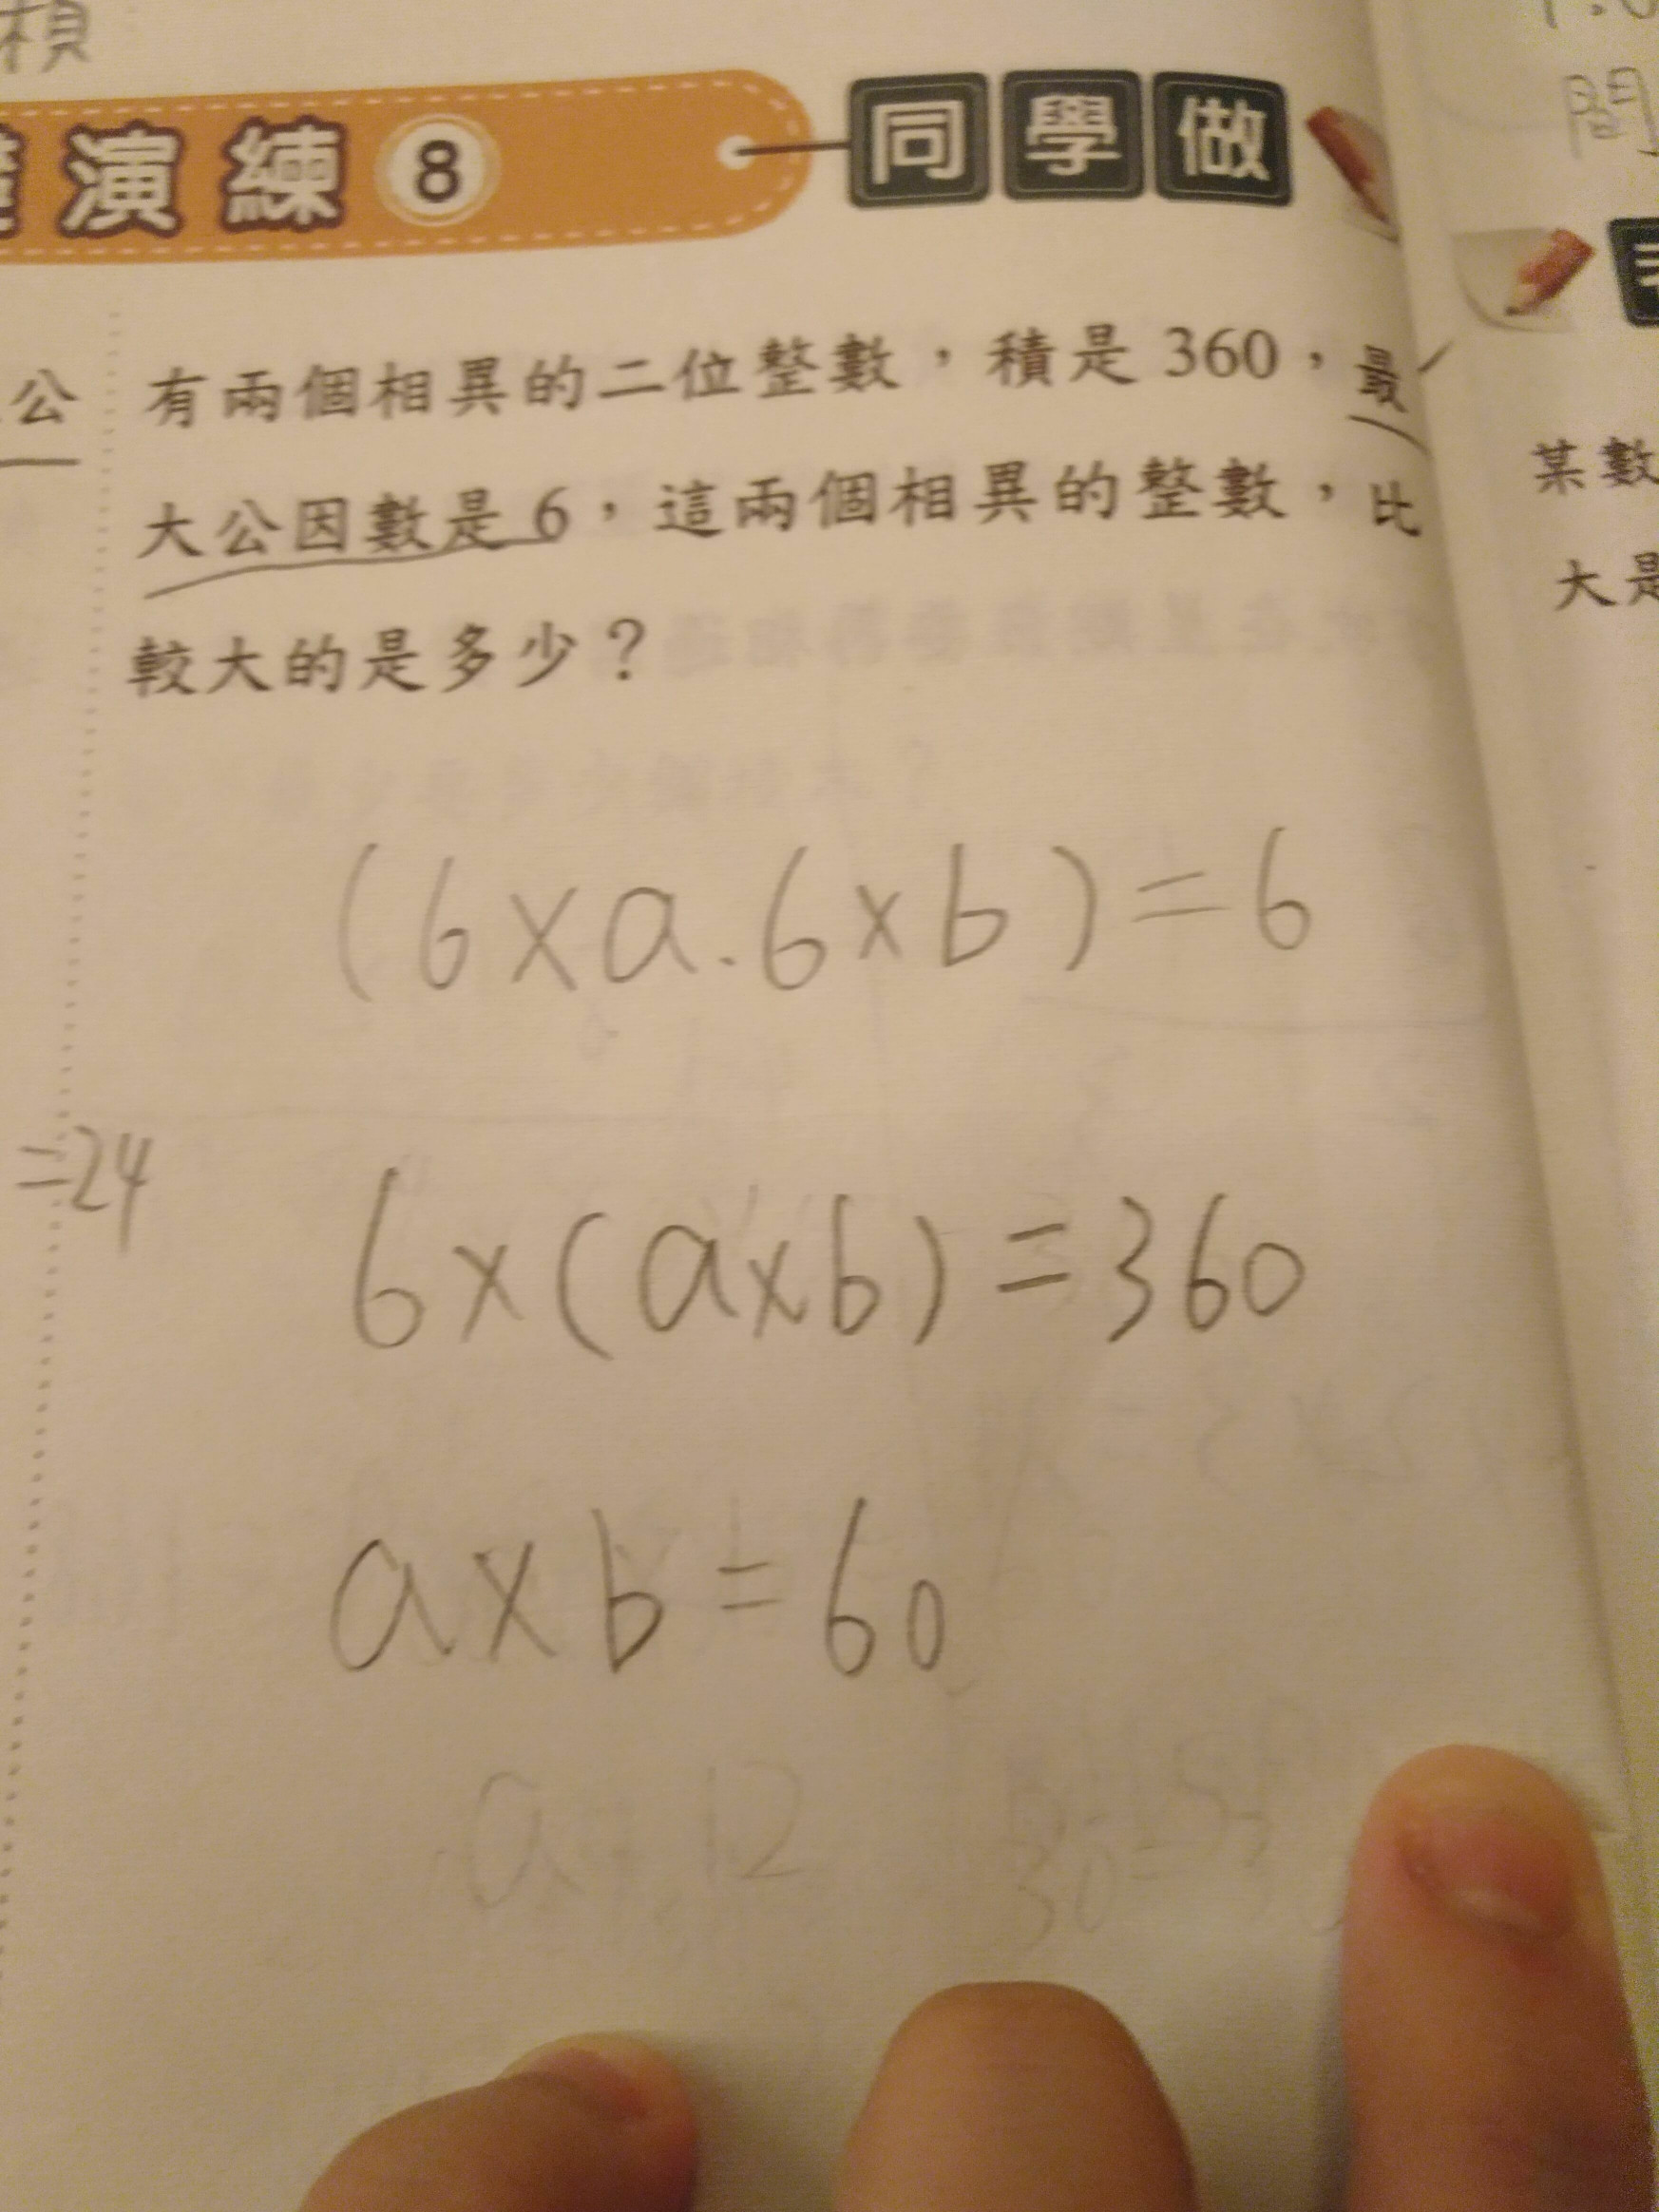 演練 8 同學做
有兩個相異的二位整數，積是 360，最
大公因數是 6，這兩個相異的整數，比
較大的是多少？
(6×a.6×b)=6
6×(a×b)=360
a×b=60
a 12
=24
公
問
某數
大是